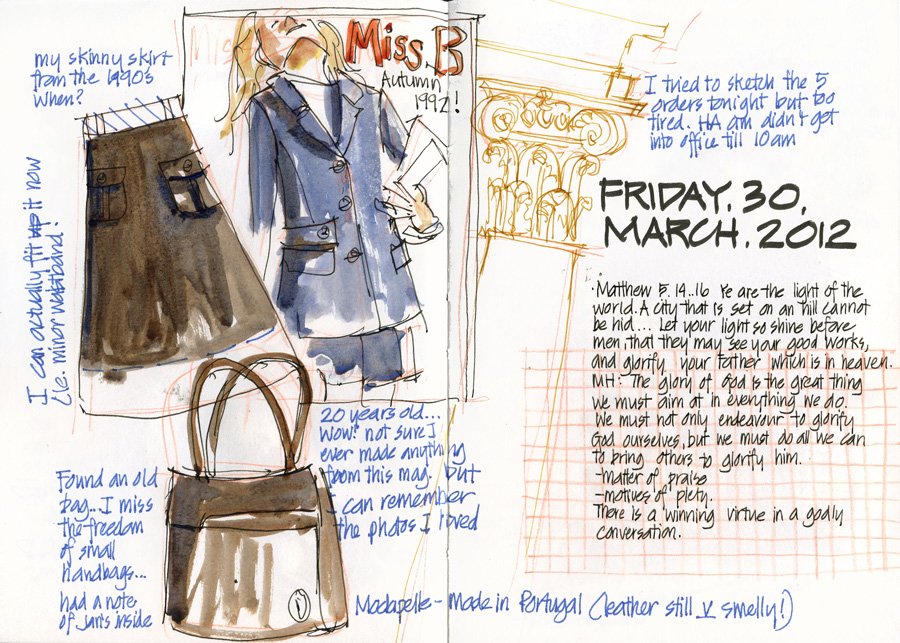 my skinny skirt
from the 1990's
When?
Miss B
Autumn
1992!
I can actually fit it now
(ie. minor waistband!
20 years old...
Wow! not sure I
ever made anything
from this mag. but
I can remember
the photos I loved
Found an old
bag... I miss
the freedom
of small
handbags...
had a note
of Jan's inside
Madapelle - made in Portugal (leather still V smelly!)
I tried to sketch the 5
orders tonight but too
tired. HA am didn't get
into office till 10am
FRIDAY. 30.
MARCH. 2012
Matthew 5. 14..16 Ye are the light of the
world. A city that is set on an hill cannot
be hid... Let your light so shine before
men, that they may see your good works,
and glorify your father which is in heaven.
MH: The glory of God is the great thing
we must aim at in everything we do.
We must not only endeavour to glorify
God ourselves, but we must do all we can
to bring others to glorify him.
-matter of praise
-motives of piety.
There is a winning virtue in a godly
conversation.